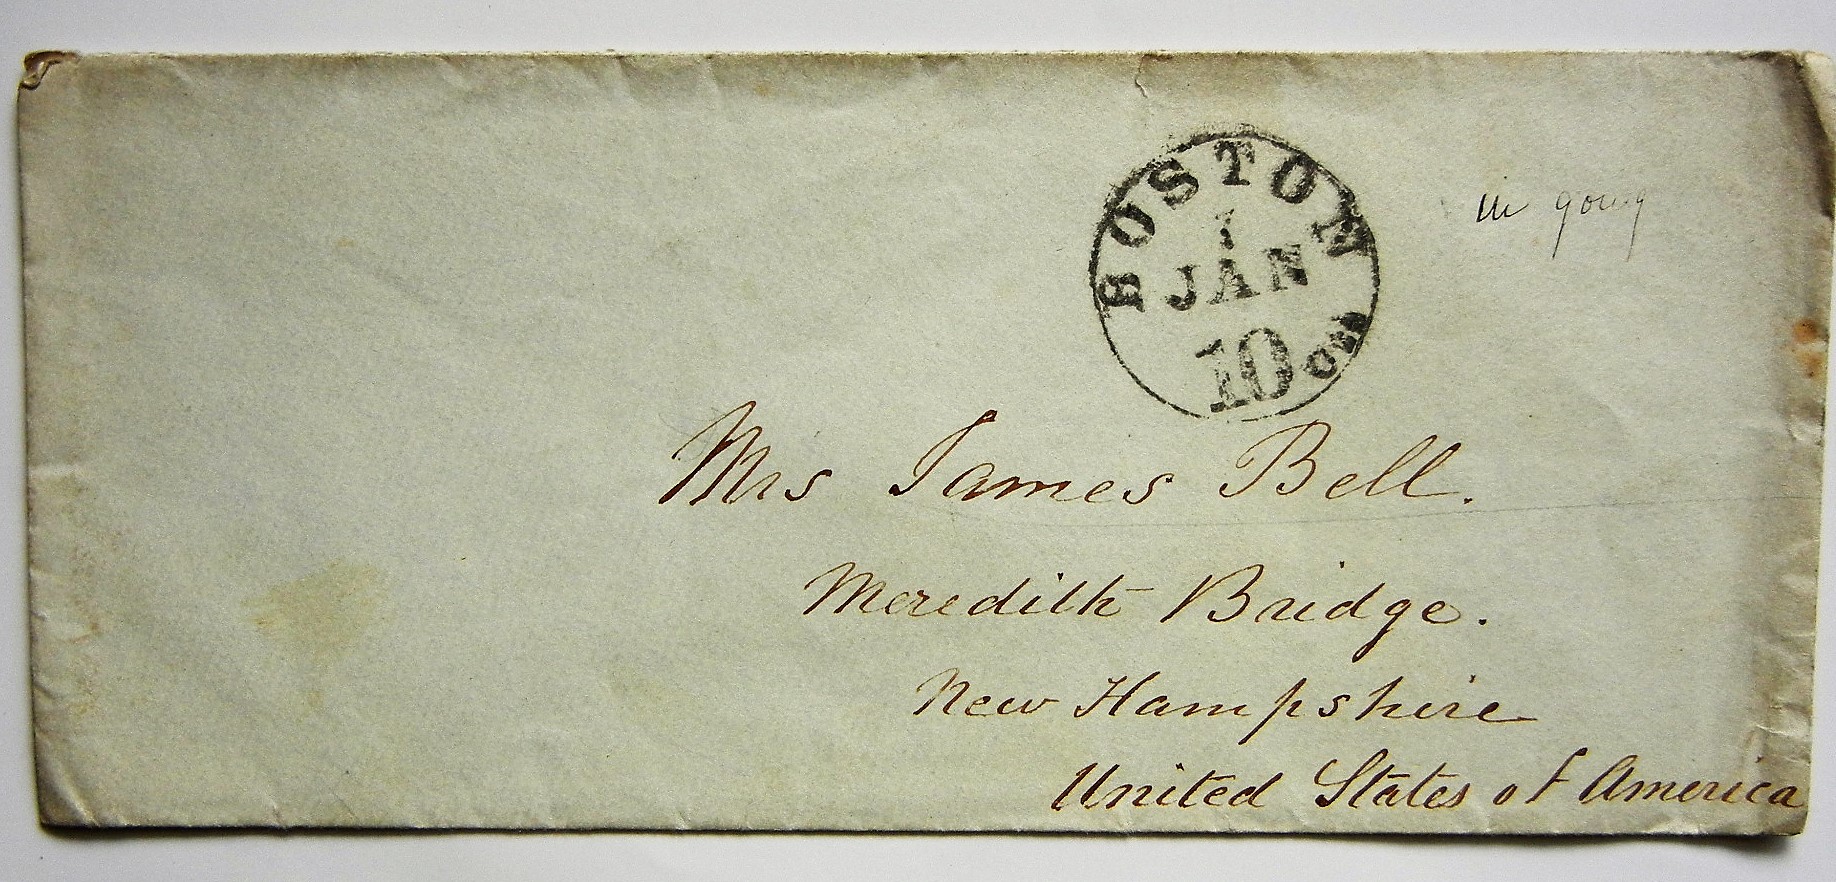 BOSTON
7
JAN
10 cts
in going
Mrs James Bell.
Meredith Bridge.
New Hampshire
United States of America